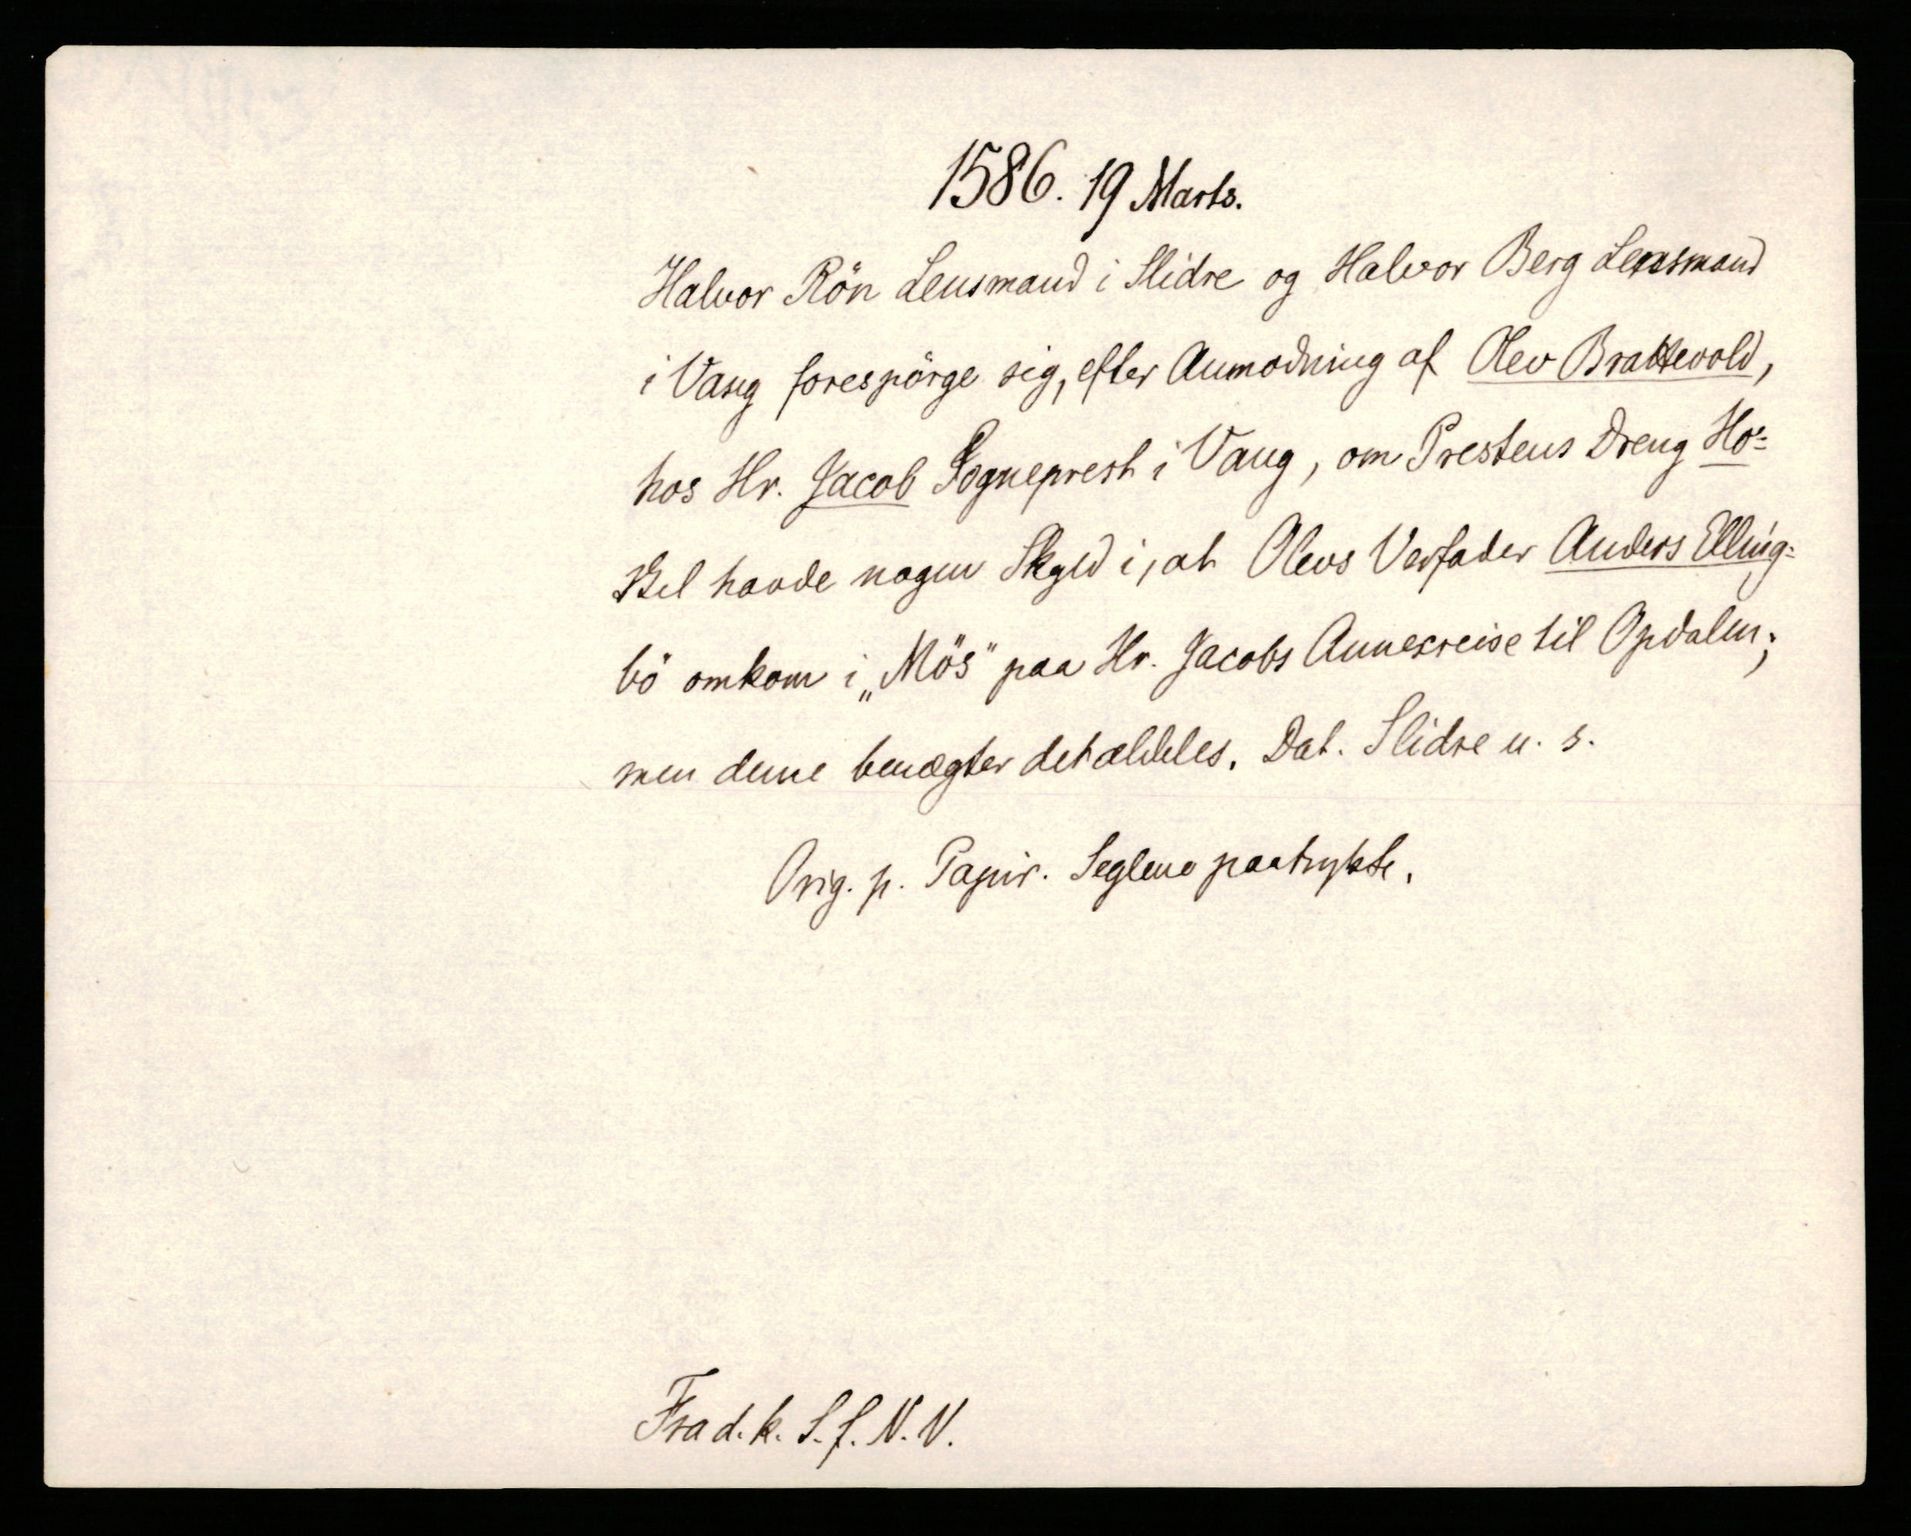 1586. 19 Marts.
Halvor Rön Lensmand i Slidre og Halvor Berg Lensmand
i Vang forespörge sig, efter Anmodning af Olev Brattevold,
hos Hr. Jacob Sogneprest i Vang, om Prestens Dreng Ho-
skel havde nogen Skyld i, at Olevs Verfader Anders Elling-
bö omkom i „Mös" paa Hr. Jacobs Annexreise til Opdalen;
men denne benægter det aldeles. Dat. Slidre u. s.
Orig. p. Papir. Seglene paatrykte.
Fra d. k. S. f. N. V.